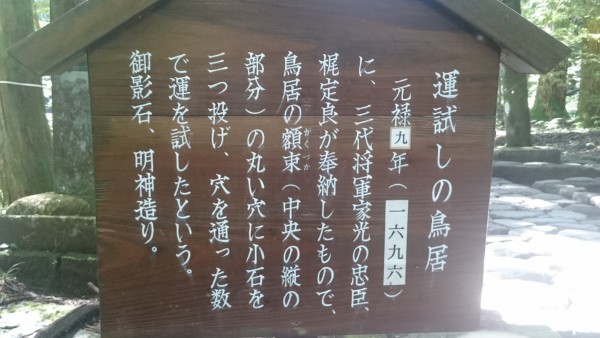 運試しの鳥居
元禄九年（一六九六）
に、三代将軍家光の忠臣、
梶定良が奉納したもので、
鳥居の額束（中央の縦の
がくづか
部分）の丸い穴に小石を
三つ投げ、穴を通った数
で運を試したという。
御影石、明神造り。